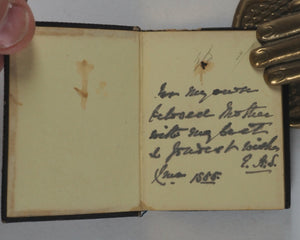 For my own
beloved Mother
with my best
& fondest wishes
E. A. S.
Xmas 1888.